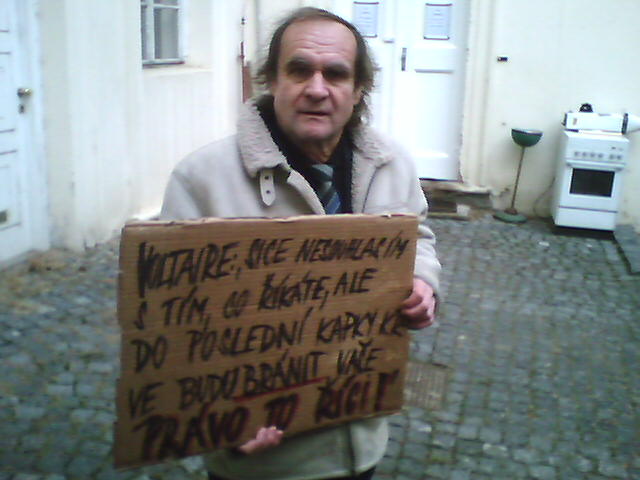 VOLTAIRE: „SICE NESOUHLASÍM
S TÍM, CO ŘÍKÁTE, ALE
DO POSLEDNÍ KAPKY KR
VE BUDU BRÁNIT VAŠE
PRÁVO TO ŘÍCI!"